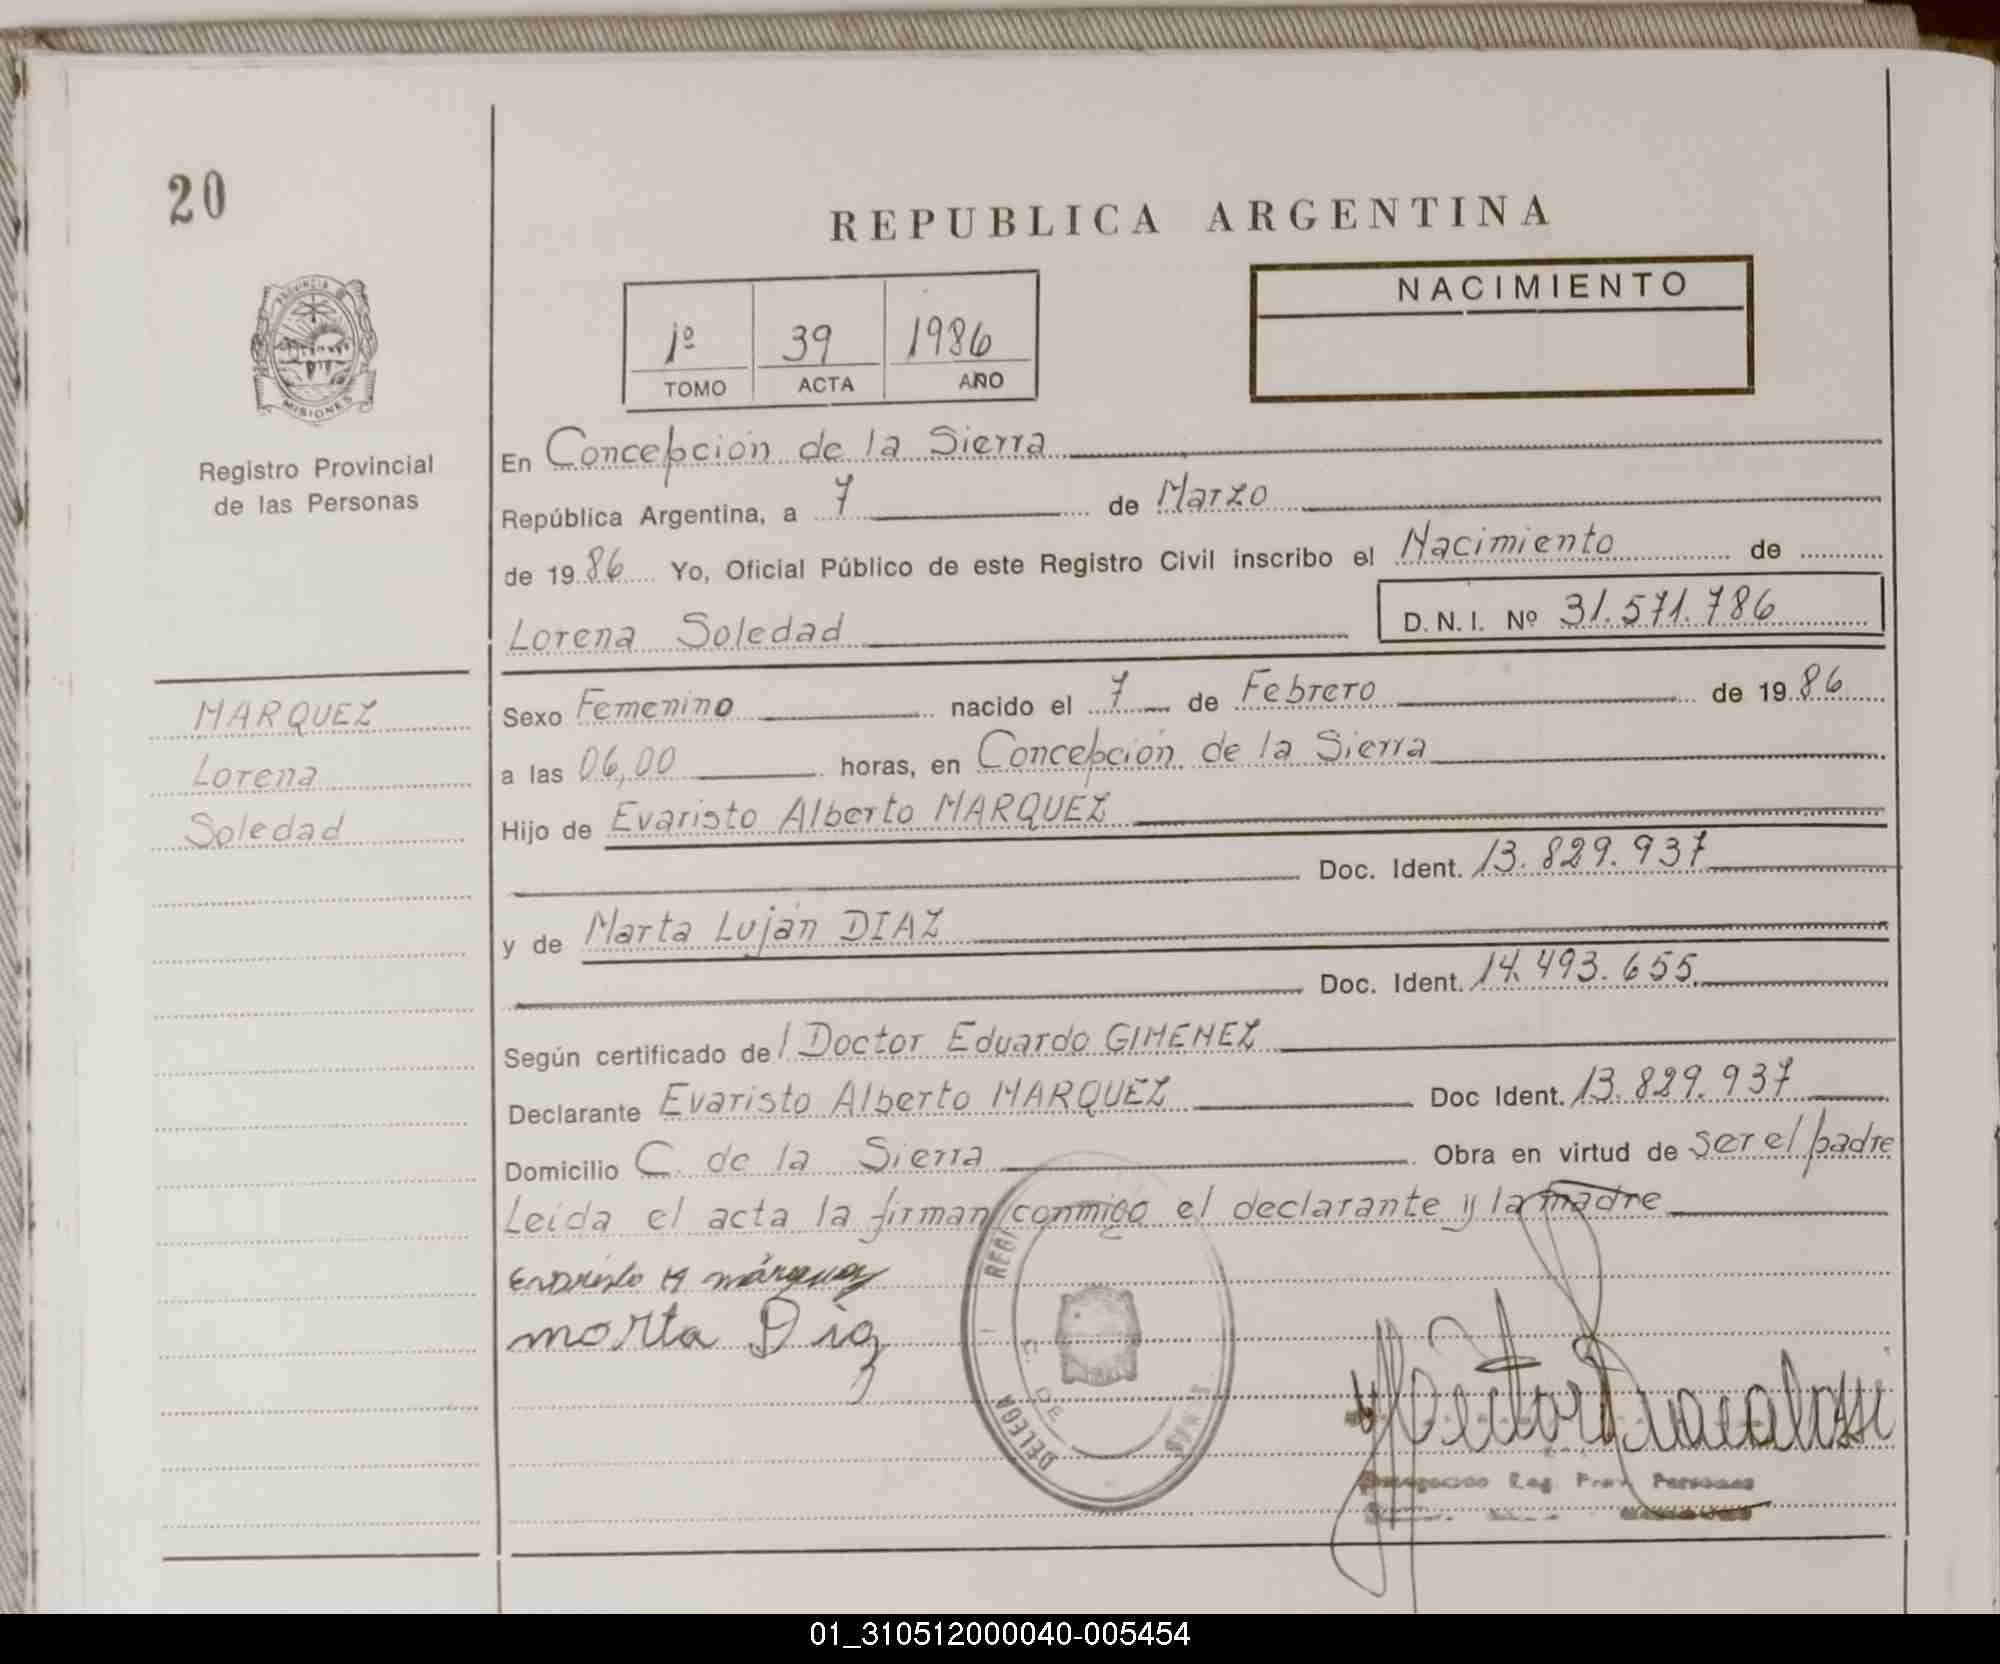 20
REPUBLICA ARGENTINA
PROVINCIA DE
MISIONES
Registro Provincial
de las Personas
1º 39 1986
TOMO ACTA AÑO
NACIMIENTO
En Concepción de la Sierra
República Argentina, a 7 de Marzo
de 1986 Yo, Oficial Público de este Registro Civil inscribo el Nacimiento de
Lorena Soledad D.N.I. Nº 31.571.786
MARQUEZ
Lorena
Soledad
Sexo Femenino nacido el 7 de Febrero de 1986
a las 06,00 horas, en Concepción de la Sierra
Hijo de Evaristo Alberto MARQUEZ
Doc. Ident. 13.829.937
y de Marta Luján DIAZ
Doc. Ident. 14.493.655.
Según certificado del Doctor Eduardo GIMENEZ
Declarante Evaristo Alberto MARQUEZ Doc Ident. 13.829.937
Domicilio C. de la Sierra Obra en virtud de ser el padre
Leída el acta la firman conmigo el declarante y la madre
Evaristo A márquez
marta Diaz
DELEGA
DE
Reg. Prov. Personas
01_310512000040-005454